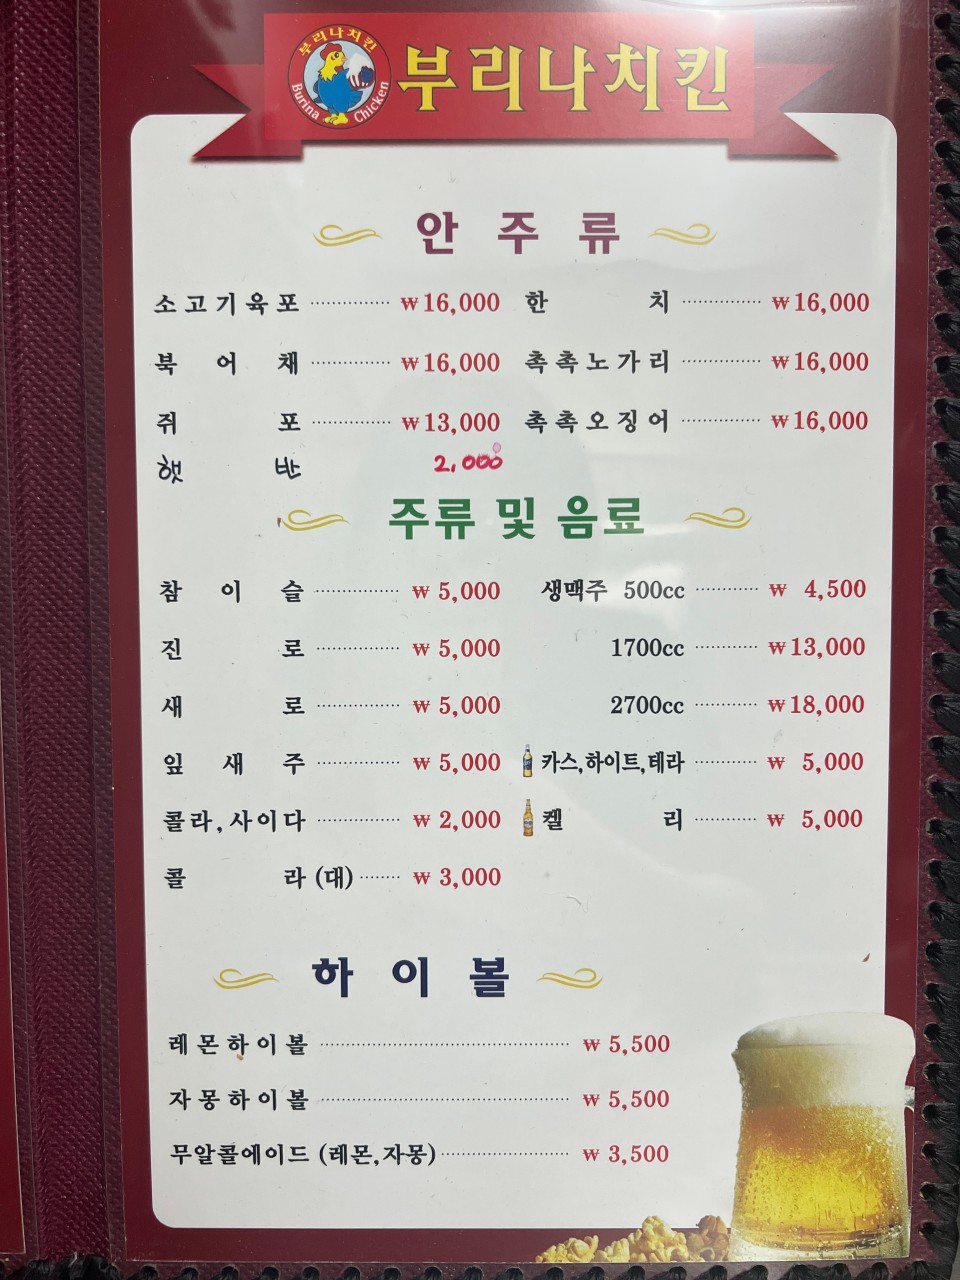 부리나치킨
Burina Chicken
부리나치킨
안주류
소고기육포 ₩16,000 한치 ₩16,000
북어채 ₩16,000 촉촉노가리 ₩16,000
쥐포 ₩13,000 촉촉오징어 ₩16,000
햇반 2,000
주류 및 음료
참이슬 ₩ 5,000 생맥주 500cc ₩ 4,500
진로 ₩ 5,000 1700cc ₩13,000
새로 ₩ 5,000 2700cc ₩18,000
잎새주 ₩ 5,000 카스,하이트,테라 ₩ 5,000
콜라,사이다 ₩ 2,000 켈리 ₩ 5,000
콜라 (대) ₩ 3,000
하이볼
레몬하이볼 ₩ 5,500
자몽하이볼 ₩ 5,500
무알콜에이드 (레몬,자몽) ₩ 3,500